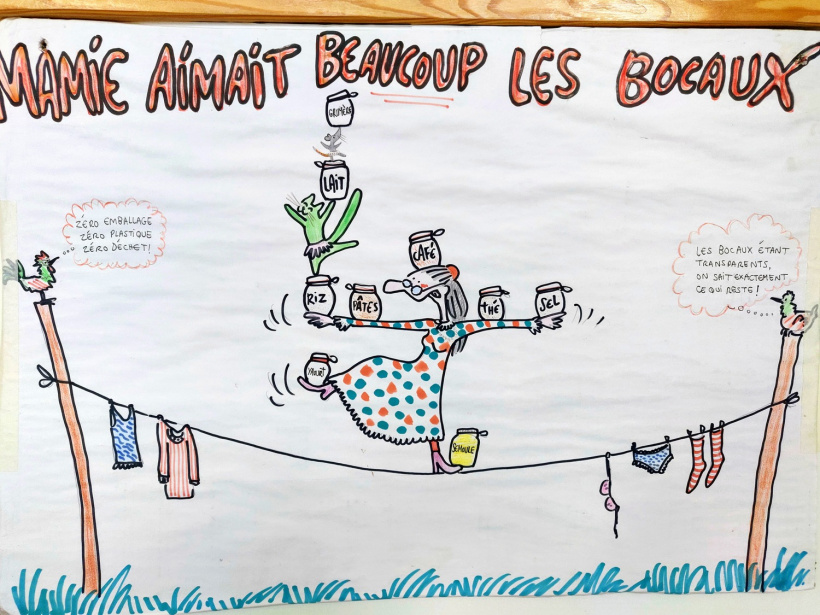 MAMIE AIMAIT BEAUCOUP LES BOCAUX
GRUYÈRE
LAIT
ZÉRO EMBALLAGE
ZÉRO PLASTIQUE
ZÉRO DÉCHET!
CAFÉ
LES BOCAUX ÉTANT
TRANSPARENTS,
ON SAIT EXACTEMENT
CE QUI RESTE!
RIZ
PÂTES
tHÉ
SEL
YAOURT
SEMOULE